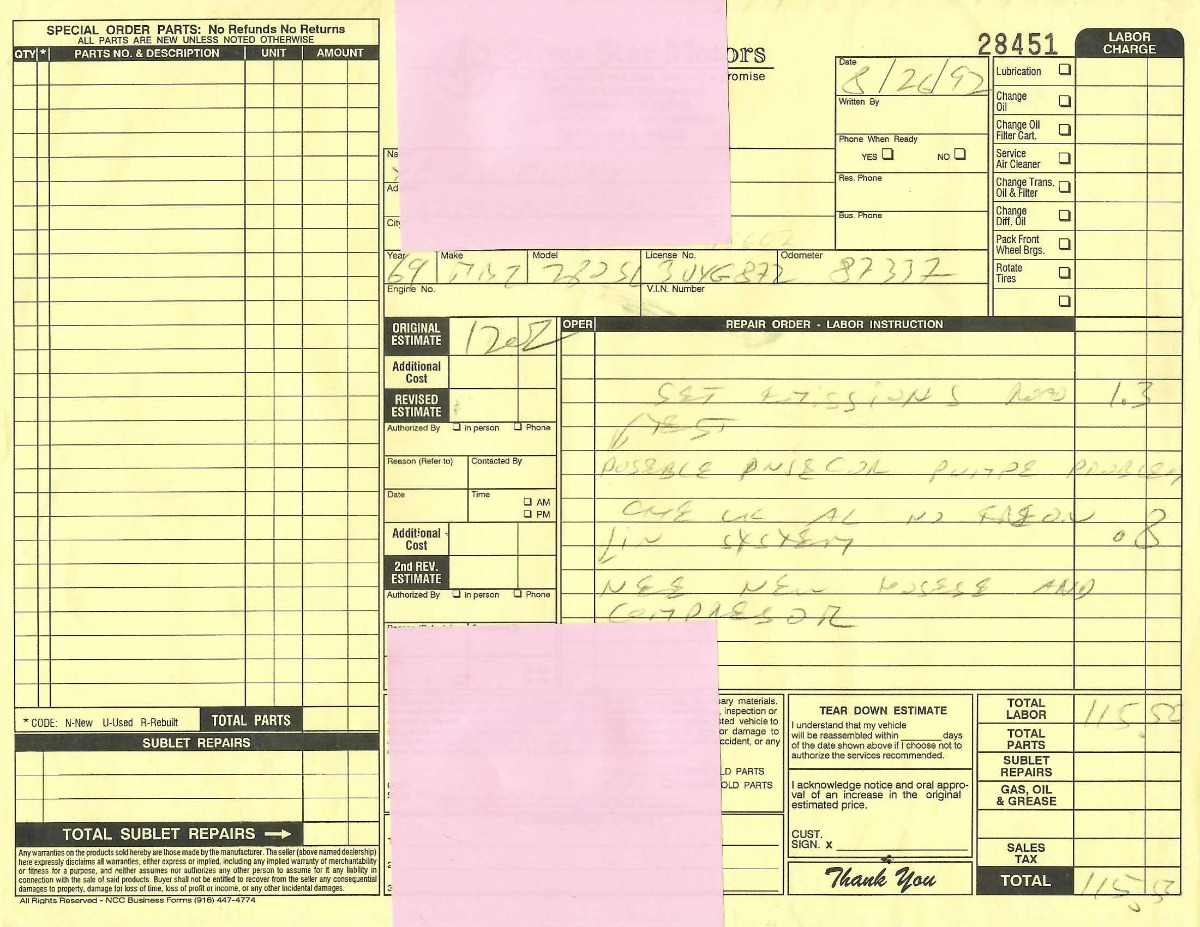 SPECIAL ORDER PARTS: No Refunds No Returns
ALL PARTS ARE NEW UNLESS NOTED OTHERWISE
QTY * PARTS NO. & DESCRIPTION UNIT AMOUNT
* CODE: N-New U-Used R-Rebuilt TOTAL PARTS
SUBLET REPAIRS
TOTAL SUBLET REPAIRS
Any warranties on the products sold hereby are those made by the manufacturer. The seller (above named dealership)
here expressly disclaims all warranties, either express or implied, including any implied warranty of merchantability
or fitness for a purpose, and neither assumes nor authorizes any other person to assume for it any liability in
connection with the sale of said products. Buyer shall not be entitled to recover from the seller any consequential
damages to property, damage for loss of time, loss of profit or income, or any other incidental damages.
All Rights Reserved - NCC Business Forms (916) 447-4774
ors
romise
28451
Date 8/26/92
Written By
Phone When Ready
YES NO
Res. Phone
Bus. Phone
Na
Ad
City
Year 69 Make Model 280SL License No. 3UYG872 Odometer 87337
Engine No. V.I.N. Number
LABOR
CHARGE
Lubrication
Change
Oil
Change Oil
Filter Cart.
Service
Air Cleaner
Change Trans.
Oil & Filter
Change
Diff. Oil
Pack Front
Wheel Brgs.
Rotate
Tires
ORIGINAL
ESTIMATE
Additional
Cost
REVISED
ESTIMATE
Authorized By in person Phone
Reason (Refer to) Contacted By
Date Time AM
PM
Additional
Cost
2nd REV.
ESTIMATE
Authorized By in person Phone
OPER REPAIR ORDER - LABOR INSTRUCTION
SET EMISSIONS AND 1.3
TEST
POSEBLE PNSECOR PUMPE PROBLEM
CHE UC AC NO FREON .8
IN SYSTEM
NEE NEW HOSESE AND
COMPRESOR
ary materials.
, inspection or
ted vehicle to
or damage to
ccident, or any
LD PARTS
OLD PARTS
TEAR DOWN ESTIMATE
I understand that my vehicle
will be reassembled within days
of the date shown above if I choose not to
authorize the services recommended.
I acknowledge notice and oral appro-
val of an increase in the original
estimated price.
CUST.
SIGN. X
Thank You
TOTAL
LABOR 115.50
TOTAL
PARTS
SUBLET
REPAIRS
GAS, OIL
& GREASE
SALES
TAX
TOTAL 115.50